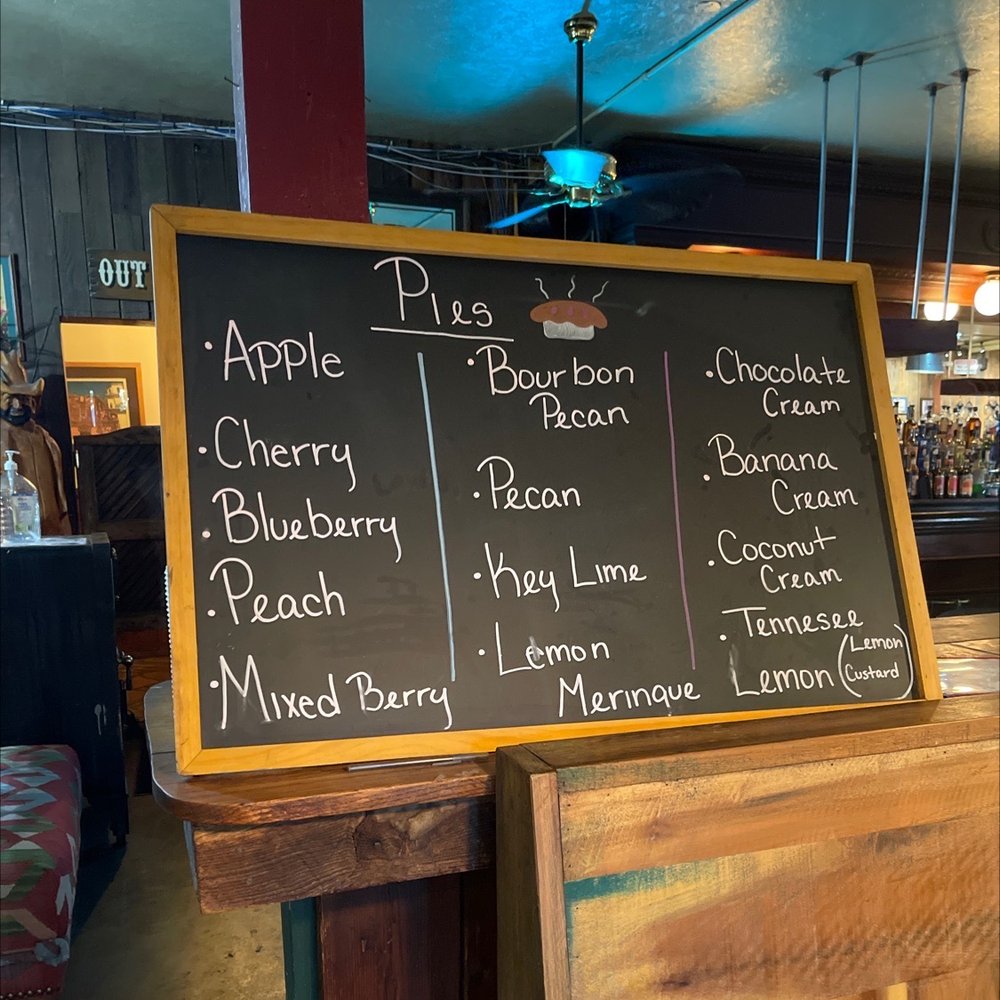 OUT
Pies
• Apple
• Cherry
• Blueberry
• Peach
• Mixed Berry
• Bourbon
Pecan
• Pecan
• Key Lime
• Lemon
Meringue
• Chocolate
Cream
• Banana
Cream
• Coconut
Cream
• Tennesee
Lemon (Lemon
Custard)